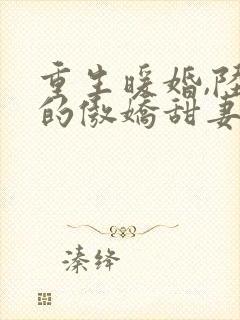 重生暖婚,陆
的傲娇甜妻
溱绛